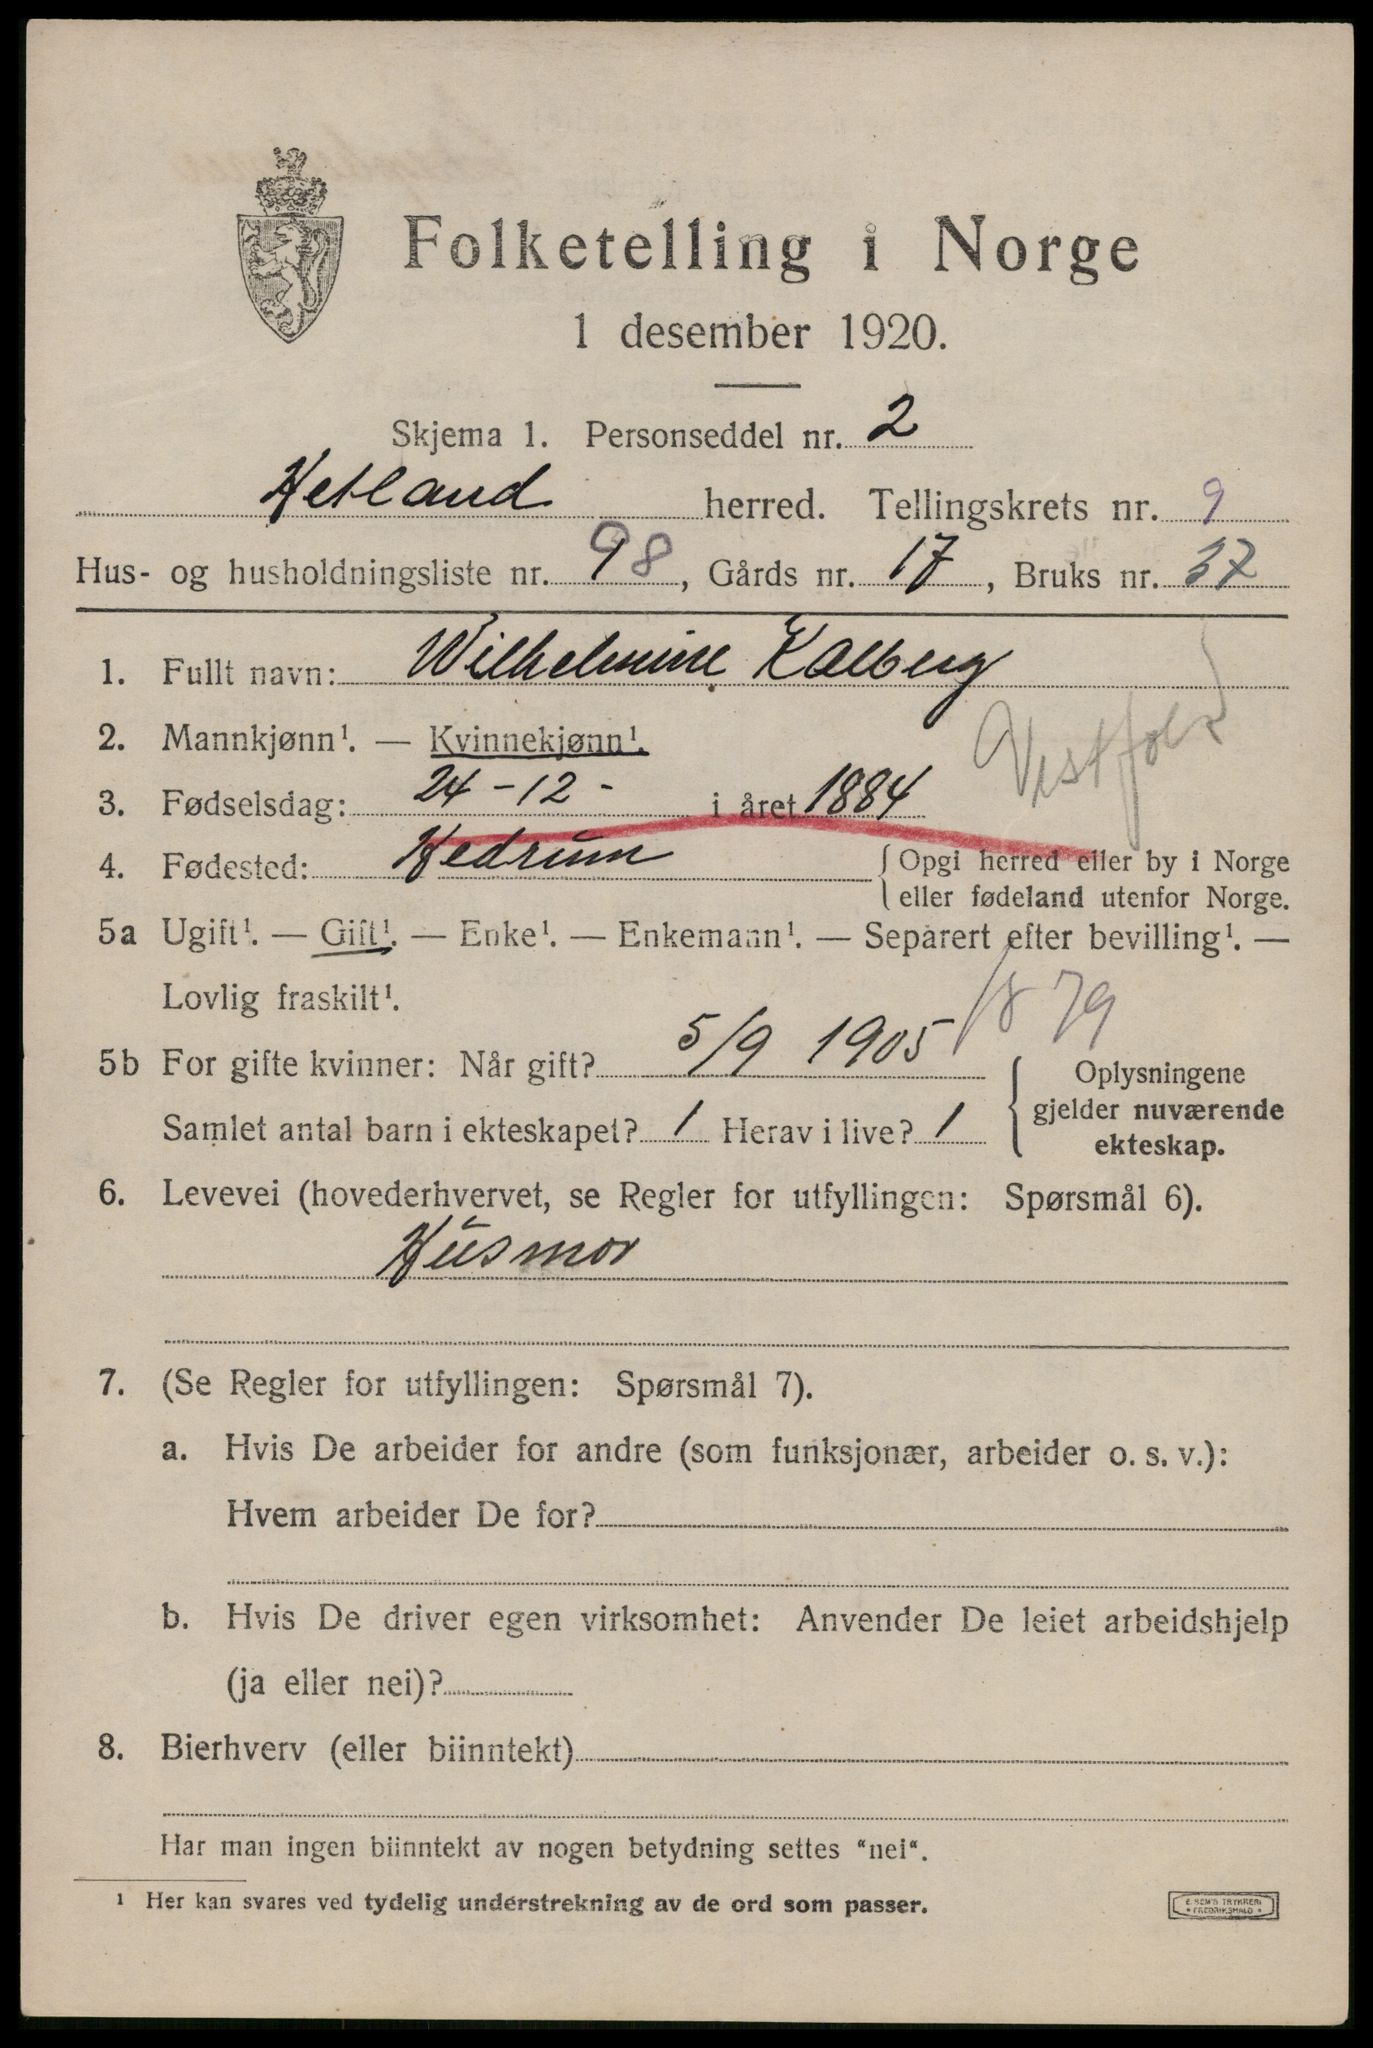 Folketelling i Norge
1 desember 1920.
Skjema 1. Personseddel nr. 2
Hetland herred. Tellingskrets nr. 9
Hus- og husholdningsliste nr. 98, Gårds nr. 17, Bruks nr. 37
1. Fullt navn: Wilhelmine Kalberg
2. Mannkjønn¹. — Kvinnekjønn¹.
Vestfold
3. Fødselsdag: 24-12- i året 1884
4. Fødested: Hedrum { Opgi herred eller by i Norge
eller fødeland utenfor Norge.
5a Ugift¹. — Gift¹. — Enke¹. — Enkemann¹. — Separert efter bevilling¹. —
Lovlig fraskilt¹.
18 79
5b For gifte kvinner: Når gift? 5/9 1905 { Oplysningene
gjelder nuværende
Samlet antal barn i ekteskapet? 1 Herav i live? 1
ekteskap.
6. Levevei (hovederhvervet, se Regler for utfyllingen: Spørsmål 6).
Husmor
7. (Se Regler for utfyllingen: Spørsmål 7).
a. Hvis De arbeider for andre (som funksjonær, arbeider o. s. v.):
Hvem arbeider De for?
b. Hvis De driver egen virksomhet: Anvender De leiet arbeidshjelp
(ja eller nei)?
8. Bierhverv (eller biinntekt)
Har man ingen biinntekt av nogen betydning settes "nei".
¹ Her kan svares ved tydelig understrekning av de ord som passer.
E. SEM'S TRYKKERI
• FREDRIKSHALD •